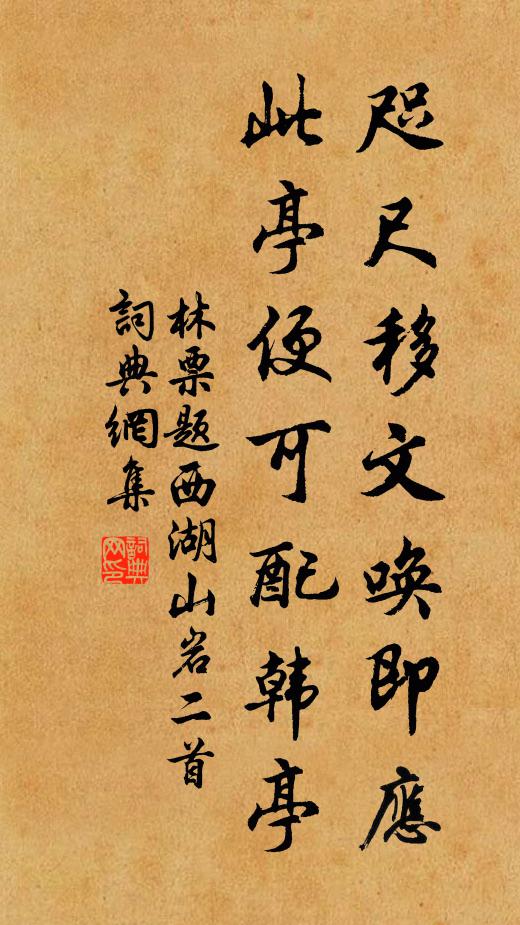 咫尺移文唤即應
此亭便可配韩亭
林栗题西湖山岩二首
詞典網集
詞典网印